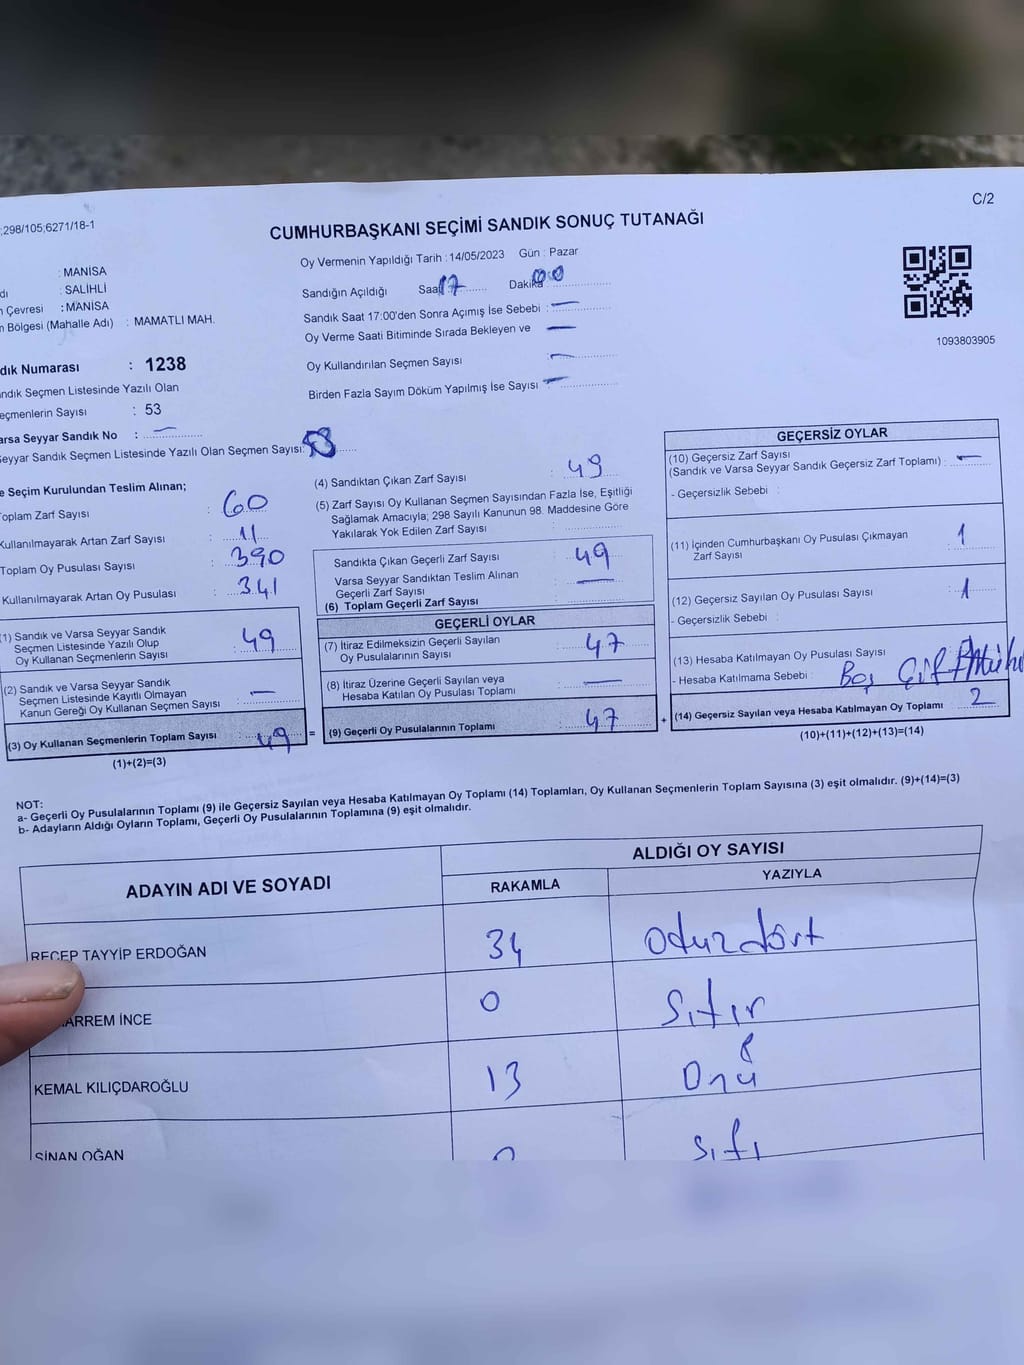 C/2
;298/105;6271/18-1
CUMHURBAŞKANI SEÇİMİ SANDIK SONUÇ TUTANAĞI
: MANİSA
dı : SALİHLİ
n Çevresi : MANİSA
n Bölgesi (Mahalle Adı) : MAMATLI MAH.
dık Numarası : 1238
ndık Seçmen Listesinde Yazılı Olan
eçmenlerin Sayısı : 53
arsa Seyyar Sandık No : —
Seyyar Sandık Seçmen Listesinde Yazılı Olan Seçmen Sayısı:
Oy Vermenin Yapıldığı Tarih : 14/05/2023 Gün : Pazar
Sandığın Açıldığı Saat 17 Dakika 00
Sandık Saat 17:00'den Sonra Açımış İse Sebebi : —
Oy Verme Saati Bitiminde Sırada Bekleyen ve —
Oy Kullandırılan Seçmen Sayısı : —
Birden Fazla Sayım Döküm Yapılmış İse Sayısı —
1093803905
e Seçim Kurulundan Teslim Alınan;
Toplam Zarf Sayısı : 60
Kullanılmayarak Artan Zarf Sayısı : 11
Toplam Oy Pusulası Sayısı : 390
Kullanılmayarak Artan Oy Pusulası : 341
(1) Sandık ve Varsa Seyyar Sandık
Seçmen Listesinde Yazılı Olup
Oy Kullanan Seçmenlerin Sayısı : 49
(2) Sandık ve Varsa Seyyar Sandık
Seçmen Listesinde Kayıtlı Olmayan
Kanun Gereği Oy Kullanan Seçmen Sayısı : —
(3) Oy Kullanan Seçmenlerin Toplam Sayısı : 49 =
(1)+(2)=(3)
(4) Sandıktan Çıkan Zarf Sayısı : 49
(5) Zarf Sayısı Oy Kullanan Seçmen Sayısından Fazla İse, Eşitliği
Sağlamak Amacıyla; 298 Sayılı Kanunun 98. Maddesine Göre
Yakılarak Yok Edilen Zarf Sayısı :
Sandıkta Çıkan Geçerli Zarf Sayısı : 49
Varsa Seyyar Sandıktan Teslim Alınan
Geçerli Zarf Sayısı : —
(6) Toplam Geçerli Zarf Sayısı :
GEÇERLİ OYLAR
(7) İtiraz Edilmeksizin Geçerli Sayılan
Oy Pusulalarının Sayısı : 47
(8) İtiraz Üzerine Geçerli Sayılan veya
Hesaba Katılan Oy Pusulası Toplamı : —
(9) Geçerli Oy Pusulalarının Toplamı : 47 +
GEÇERSİZ OYLAR
(10) Geçersiz Zarf Sayısı
(Sandık ve Varsa Seyyar Sandık Geçersiz Zarf Toplamı) : —
- Geçersizlik Sebebi :
(11) İçinden Cumhurbaşkanı Oy Pusulası Çıkmayan
Zarf Sayısı : 1
(12) Geçersiz Sayılan Oy Pusulası Sayısı : 1
- Geçersizlik Sebebi :
(13) Hesaba Katılmayan Oy Pusulası Sayısı :
- Hesaba Katılmama Sebebi : Boş Çift
(14) Geçersiz Sayılan veya Hesaba Katılmayan Oy Toplamı 2
(10)+(11)+(12)+(13)=(14)
NOT:
a- Geçerli Oy Pusulalarının Toplamı (9) ile Geçersiz Sayılan veya Hesaba Katılmayan Oy Toplamı (14) Toplamları, Oy Kullanan Seçmenlerin Toplam Sayısına (3) eşit olmalıdır. (9)+(14)=(3)
b- Adayların Aldığı Oyların Toplamı, Geçerli Oy Pusulalarının Toplamına (9) eşit olmalıdır.
ADAYIN ADI VE SOYADI ALDIĞI OY SAYISI
RAKAMLA YAZIYLA
RECEP TAYYİP ERDOĞAN 34 Otuzdört
ARREM İNCE 0 Sıfır
KEMAL KILIÇDAROĞLU 13 Onüç
SİNAN OĞAN 0 Sıfı